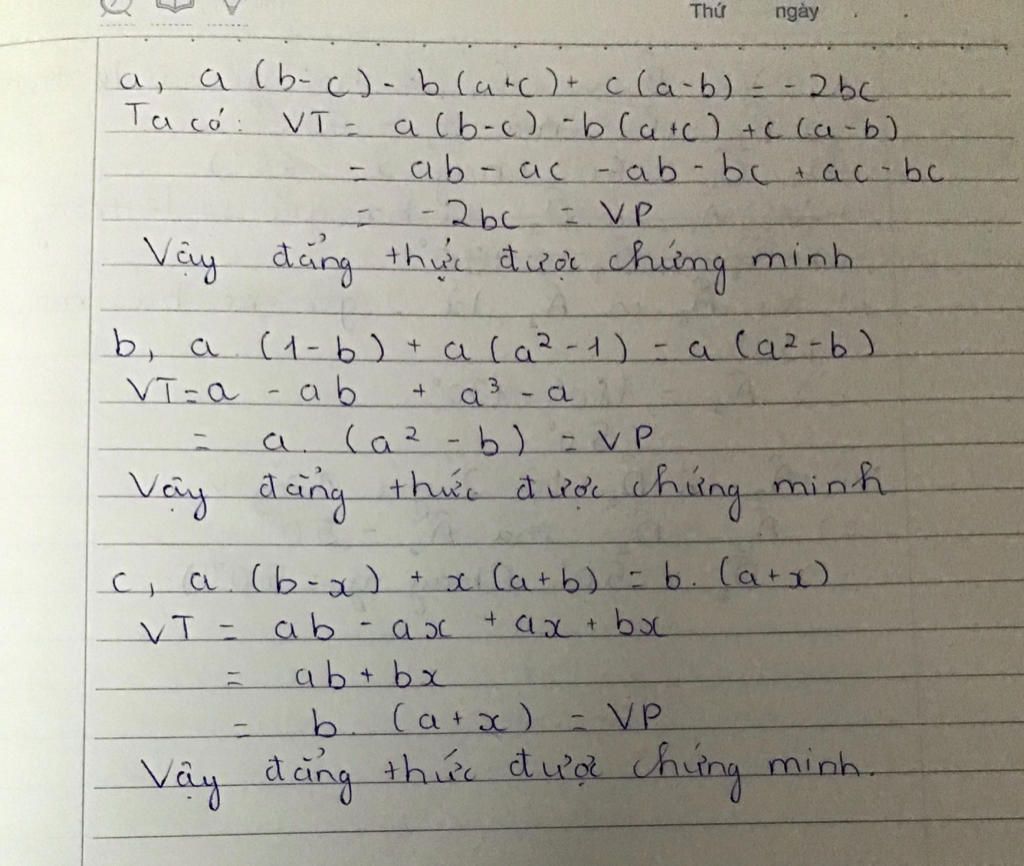 Thứ ngày . .
a, a (b-c) - b (a+c) + c (a-b) = -2bc
Ta có: VT = a (b-c) -b (a+c) +c (a-b)
= ab - ac - ab - bc + ac - bc
= -2bc = VP
Vậy đẳng thức được chứng minh
b, a. (1-b) + a (a² -1) = a (a² -b)
VT = a - ab + a³ - a
= a. (a² - b) = VP
Vậy đẳng thức được chứng minh
c, a. (b-x) + x. (a+b) = b. (a+x)
VT = ab - ax + ax + bx
= ab + bx
= b. (a+x) = VP
Vậy đẳng thức được chứng minh.